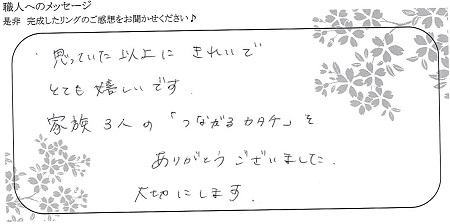 職人へのメッセージ
是非 完成したリングのご感想をお聞かせください♪
思っていた以上に きれいで
とても嬉しいです.
家族 3人の 「つながるカタチ」を
ありがとうございました.
大切にします.